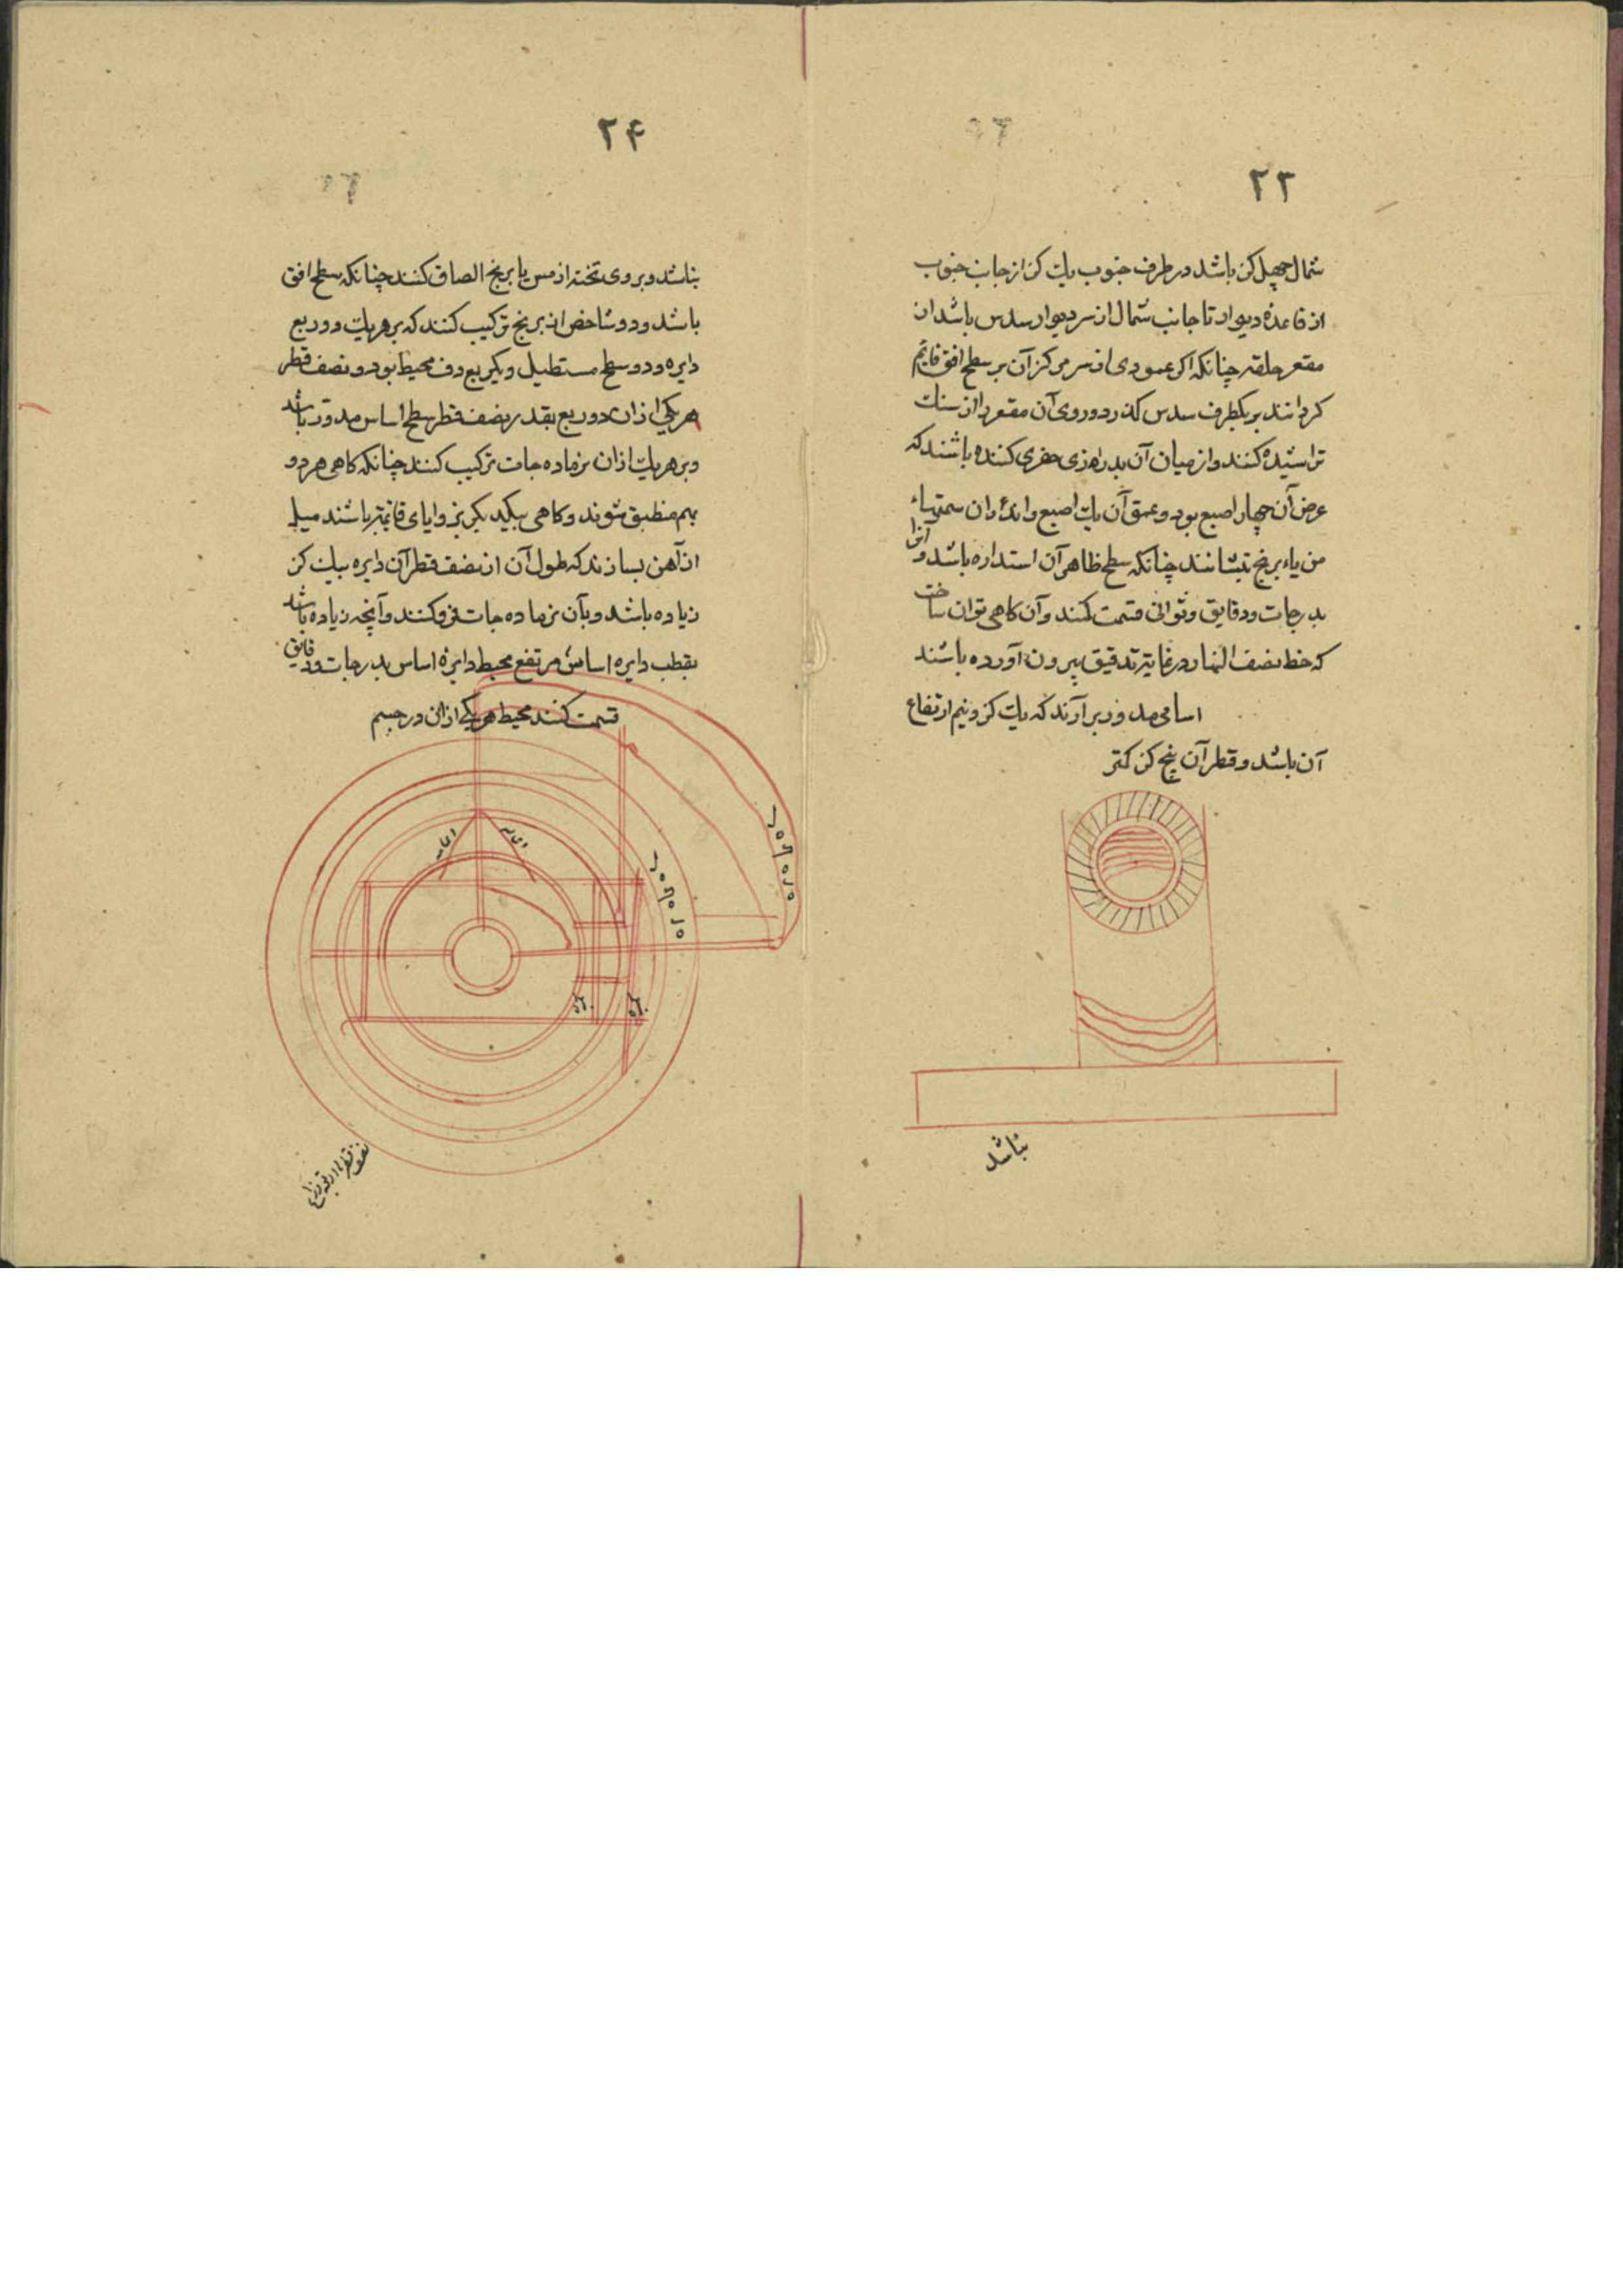 ۲۳
شمال چهل کز باشد در طرف جنوب یک کز از جانب جنوب
از قاعدهٔ دیوار تا جانب شمال از سر دیوار سدس باشد از
مقعر حلقه چنانکه اکر عمودی از سر مرکز آن بر سطح افق قایم
کردانند بر یکطرف سدس کذرد و روی آن مقعر را از سنک
تراشیده کنند و از میان آن بدرازی حفری کنده باشند که
عرض آن چهار اصبع بود و عمق آن یک اصبع و اندران
من یاء برنج بنشانند چنانکه سطح ظاهر آن استداره باشد و آنرا
بدرجات و دقایق و ثوانی قسمت کنند و آن کاهی توان ساخت
که خط نصف النهار در غایة تدقیق بیرون آورده باشند
اساسی مدور برآرند که یک کز و نیم ارتفاع
آن باشد و قطر آن پنج کز کمتر
نباشد
۲۴
نباشد و بر وی تخته از مس یا برنج الصاق کنند چنانکه سطح افق
باشد و دو شاخص از برنج ترکیب کنند که بر هر یک دو ربع
دایره و دو سطح مستطیل و یکربع دف محیط بود و نصف قطر
هر یکی از ان دو ربع بقدر نصف قطر سطح اساس مدور باشد
و بر هر یک از ان نرماده جات ترکیب کنند چنانکه کاهی هر دو
بهم منطبق شوند و کاهی بیکدیکر بزوایای قائمه باشند میلی
از آهن بسازند که طول آن از نصف قطر آن دایره بیک کز
زیاده باشد و بآن نرماده جات فرو کنند و آنچه زیاده باشد
بقطب دایره اساس مرتفع محیط دایرهٔ اساس بدرجات و دقایق
قسمت کنند محیط هر یکی از ان در جسم